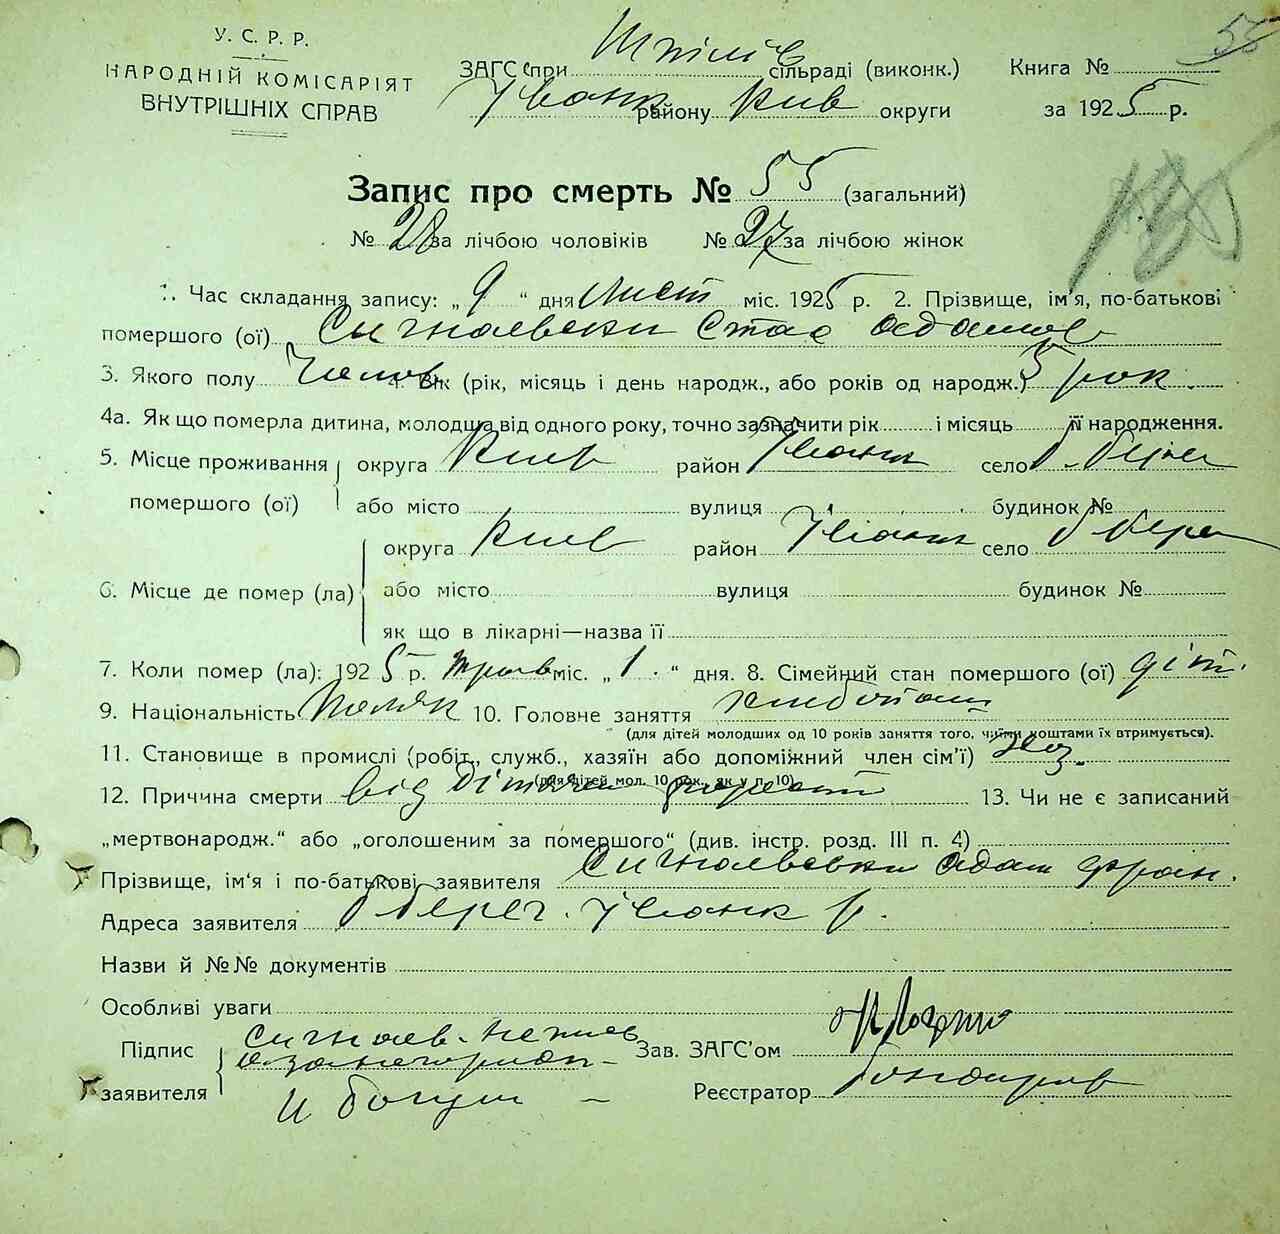 55
У. С. Р. Р.
НАРОДНІЙ КОМІСАРІЯТ
ВНУТРІШНІХ СПРАВ
ЗАГС при Шпілів сільраді (виконк.)
Книга №
Іванк району Киів округи
за 1925 р.
Запис про смерть № 55 (загальний)
№ 28 за лічбою чоловіків № 27 за лічбою жінок
1. Час складання запису: „ 9 “ дня Лист міс. 1925 р. 2. Прізвище, ім'я, по-батькові
помершого (ої) Сигналевски Стас Адамов
3. Якого полу Чолов 4. Вік (рік, місяць і день народж., або років од народж.) 5 рок.
4а. Як що померла дитина, молодша від одного року, точно зазначити рік і місяць її народження.
5. Місце проживання помершого (ої) округа Киів район Іванк село
або місто вулиця будинок №
6. Місце де помер (ла) округа Киів район Іванк село
або місто вулиця будинок №
як що в лікарні—назва її
7. Коли помер (ла): 1925 р. трав міс. „ 1 “ дня. 8. Сімейний стан помершого (ої) діт.
9. Національність Поляк 10. Головне заняття хлибопаш
(для дітей молодших од 10 років заняття того, чиїми коштами їх втримується).
11. Становище в промислі (робіт., служб., хазяїн або допоміжний член сім'ї) Хаз.
(для дітей мол. 10 рок., як у п. 10)
12. Причина смерти від 13. Чи не є записаний
„мертвонародж.“ або „оголошеним за помершого“ (див. інстр. розд. III п. 4)
Прізвище, ім'я і по-батькові заявителя Сигналевски Адам Фран.
Адреса заявителя Іванк р.
Назви й №№ документів
Особливі уваги
Підпис заявителя Сигналев.
Зав. ЗАГС'ом
Реєстратор Бондар